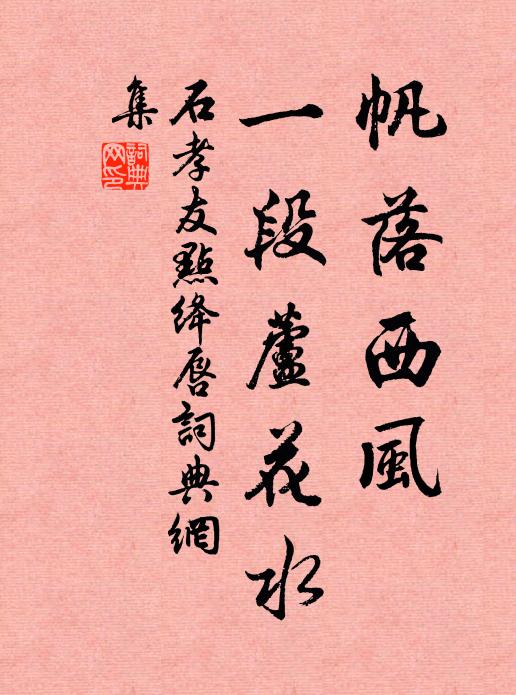 帆落西風
一段蘆花水
石孝友點絳唇詞典網
集
詞典
网印